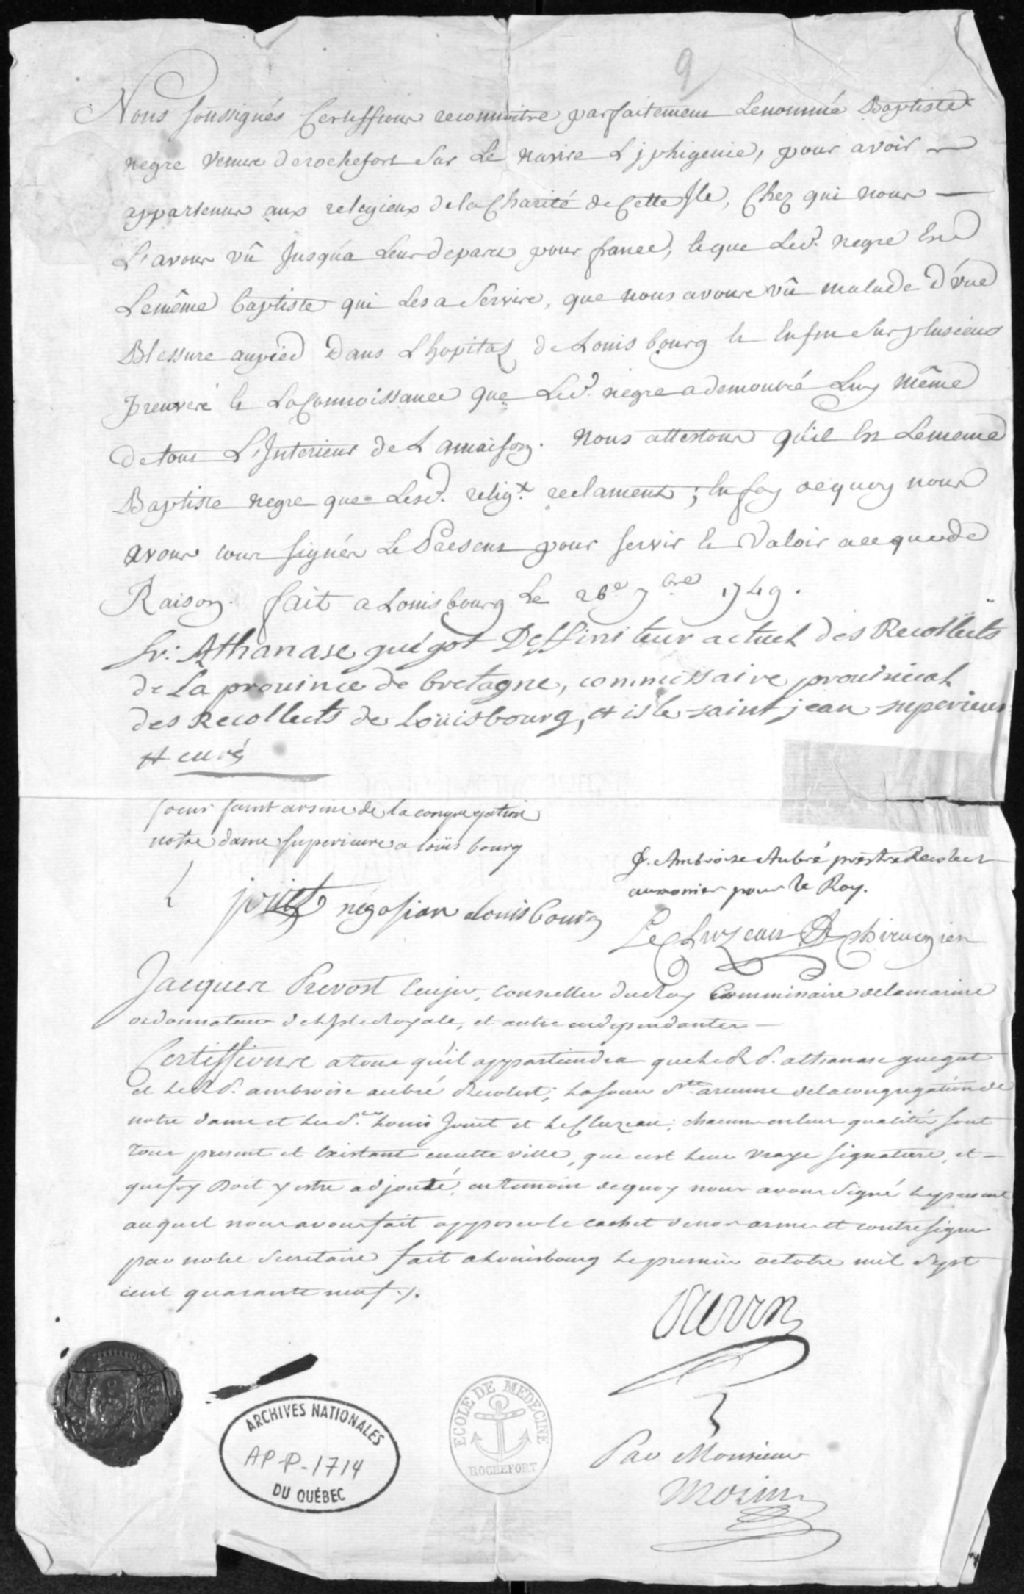 9
Nous soussignés Certiffions reconnoitre parfaitement Lenommé Baptiste
negre venu de rochefort sur Le navire L'jphigenie, pour avoir
appartenu aux religieux de la Charité de Cette Jle, Chez qui nous
L'avons vû Jusqúa Leur depart pour france, que Led. negre Est
Lemême baptiste qui Les a Servis, que nous avons vû malade d'vne
Blessure au pied Dans L'hopital de Louisbourg & Enfin sur plusieurs
preuves & La Connoissance que Led. negre a demontré Luy même
de tout L'Interieur de La maison. Nous attestons qu'il Est Lememe
Baptiste negre que Lesd. relig.x reclament; En foy de quoy nous
avons tous signés Le Present pour servir & Valoir ce que de
Raison. fait a Louisbourg Le 26e 7bre 1749.
fr: Athanase guégot Deffiniteur actuel des Recollects
de La province de bretagne, commissaire provincial
des Recollects de Louisbourg, et isle saint jean superieur
et curé
soeur saint arsene de la congregation
notre dame superieure a loüisbourg
P. Ambroise Aubré prestre Recolect
aumonier pour le Roy.
jouet négosian Louisbourg
LeCluzeau Chirurgien
Jacques Prevost Ecuyer, Conseiller du Roy Commissaire de la marine
ordonnateur de L'Isle Royale, et autre independantes
Certiffions a tous qu'il appartiendra que Le R. P. athanase guegot
et Le R. P. ambroise aubré Recolect, La soeur Ste arsenne de la congregation de
notre dame et Les Srs Louis Jouet et LeCluzeau, chacun en leur qualité sont
tous present et Existant en cette ville, que c'est leur vraye signature, et
que foy Doit y estre adjouté, en temoin de quoy nous avons signé Le present
auquel nous avons fait apposer le cachet de nos armes et contresigné
par notre Secretaire fait a Louisbourg Le premier octobre mil sept
cent quarante neuf ./.
Prevost
Par Monsieur
Morin
ARCHIVES NATIONALES
AP-P-1714
DU QUÉBEC
ECOLE DE MEDECINE
ROCHEFORT